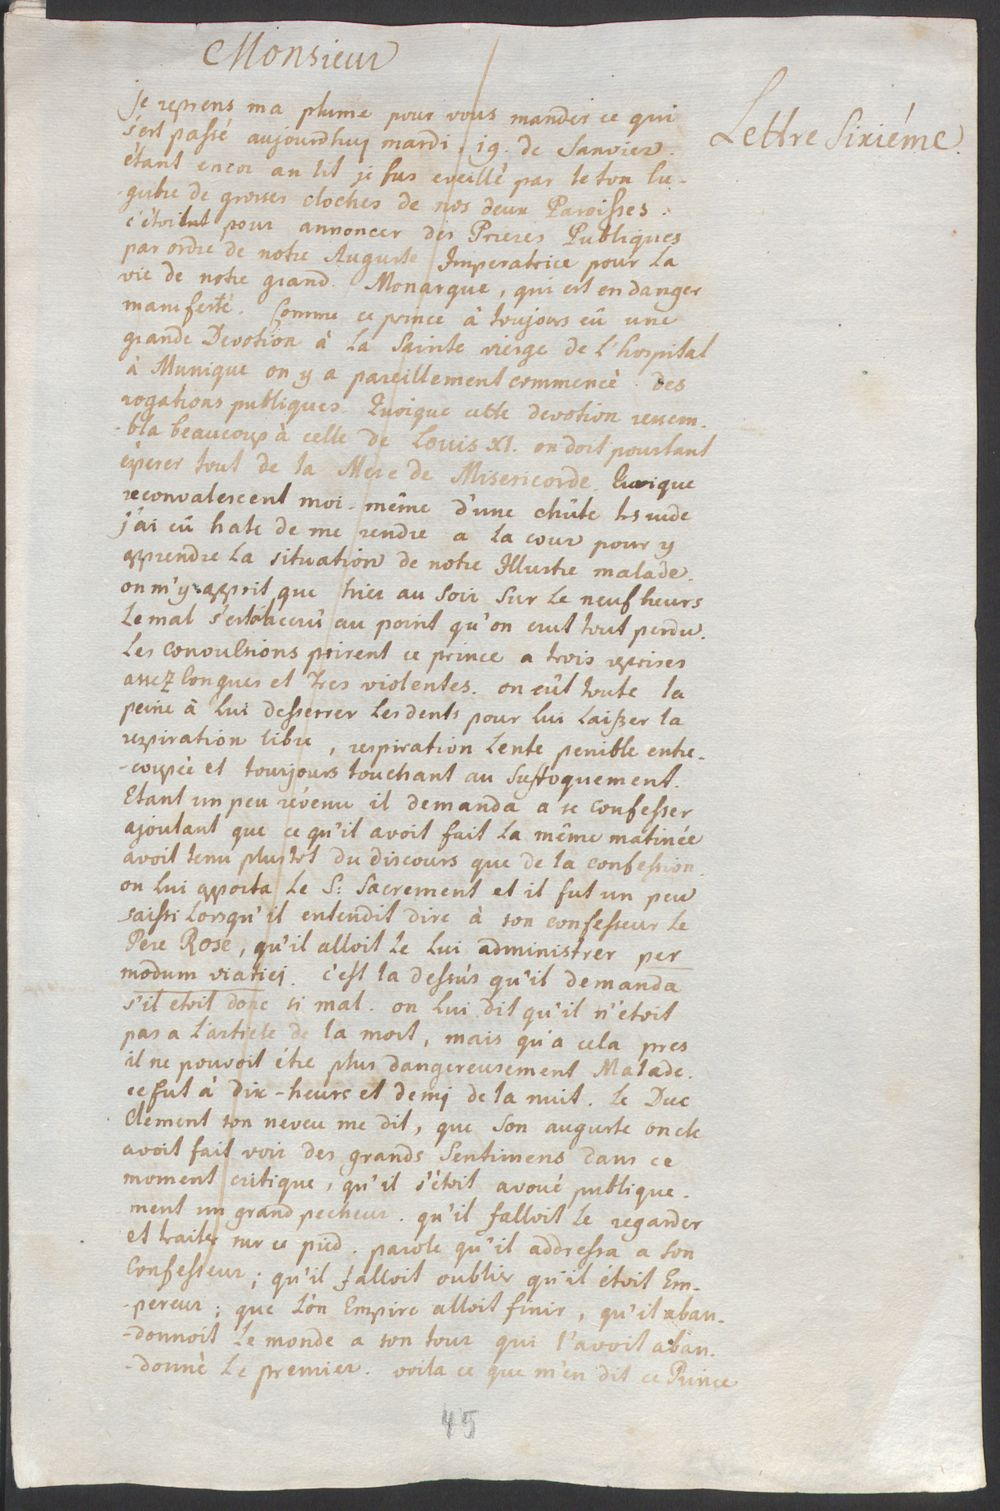 Monsieur
Lettre Sixiéme.
Je reprens ma plume pour vous mander ce qui
s'est passé aujourdhuy mardi . 19. de Janvier.
étant encor au lit je fus eveillé par le ton lu-
-gubre de grosses cloches de nos deux Paroisses.
c'étoient pour annoncer des Prieres Publiques
par ordre de notre Auguste Imperatrice pour la
vie de notre grand Monarque, qui est en danger
manifesté. Comme ce prince à toujours eû une
grande Devotion à la Sainte vierge de l'hospital
à Munique on y a pareillement commencè des
rogations publiques. Quoique cette devotion ressem-
-bla beaucoup à celle de Louis XI. on doit pourtant
éperer tout de la Mere de Misericorde. Quoique
reconvalescent moi-même d'une chûte ts rude
j'ai eû hate de me rendre a la cour pour y
apprendre la situation de notre Illustre malade.
on m'y apprit que hier au soir sur le neuf heurs
le mal s'estoit accrû au point qu'on crut tout perdu.
Les convulsions prirent ce prince a trois reprises
assez longues et tres violentes. on eût toute la
peine à lui desserrer les dents pour lui laisser la
respiration libre, respiration lente penible entre-
-coupée et tourjours touchant au suffoquement.
Etant un peu révenu il demanda a se confesser
ajoutant que ce qu'il avoit fait la même matinée
avoit tenu plustot du discours que de la confession.
on lui apporta le S: Sacrement et il fut un peu
saissi lorsqu'il entendit dire à son confesseur le
Pere Rose, qu'il alloit le lui administrer per
modum viatici. c'est la dessús qu'il demanda
s'il etoit donc si mal. on lui dit qu'il n'étoit
pas a l'article de la mort, mais qu'a cela pres
il ne pouvoit étre plus dangereusement Malade.
ce fut à dix-heurs et demj de la nuit. le Duc
Clement son neveu me dit, que son auguste oncle
avoit fait voir des grands sentimens dans ce
moment critique, qu'il s'étoit avoué publique-
ment un grand pecheur. qu'il falloit le regarder
et traiter sur ce pied. parole qu'il addressa a son
Confesseur; qu'il falloit oublier qu'il étoit Em-
-pereur; que son Empire alloit finir, qu'il aban-
-donnoit le monde a son tour qui l'avoit aban-
-donnè le premier. voila ce que m'en dit ce Prince
45